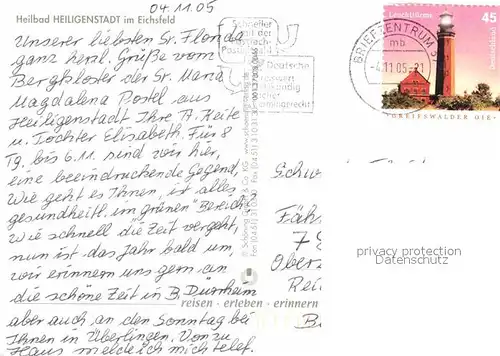 04.11.05
Heilbad HEILIGENSTADT im Eichsfeld
Unserer liebsten Sr. Florida
ganz herzl. Grüße vom
Bergkloster der Sr. Maria
Magdalena Postel aus
Heiligenstadt Ihre A. Keite
u. Tochter Elisabeth. Für 8
Tg. bis 6.11. sind wir hier,
eine beeindruckende Gegend,
Wie geht es Ihnen, ist alles
gesundheitl. im „grünen" Bereich?
Wie schnell die Zeit vergeht,
nun ist das Jahr bald um,
wir erinnern uns gern an
die schöne Zeit in B. Dürrheim
aber auch an den Sonntag bei
Ihnen in Überlingen. Von zu
Haus melde ich mich telef.
reisen - erleben - erinnern
Schneller
mit der
Postfach-
BRIEFZENTRUM
mb
-4.11.05-21
Leuchttürme
45
Deutschland
GREIFSWALDER OIE
Schw
Fäh
Oberz
Rei
privacy protection
Datenschutz